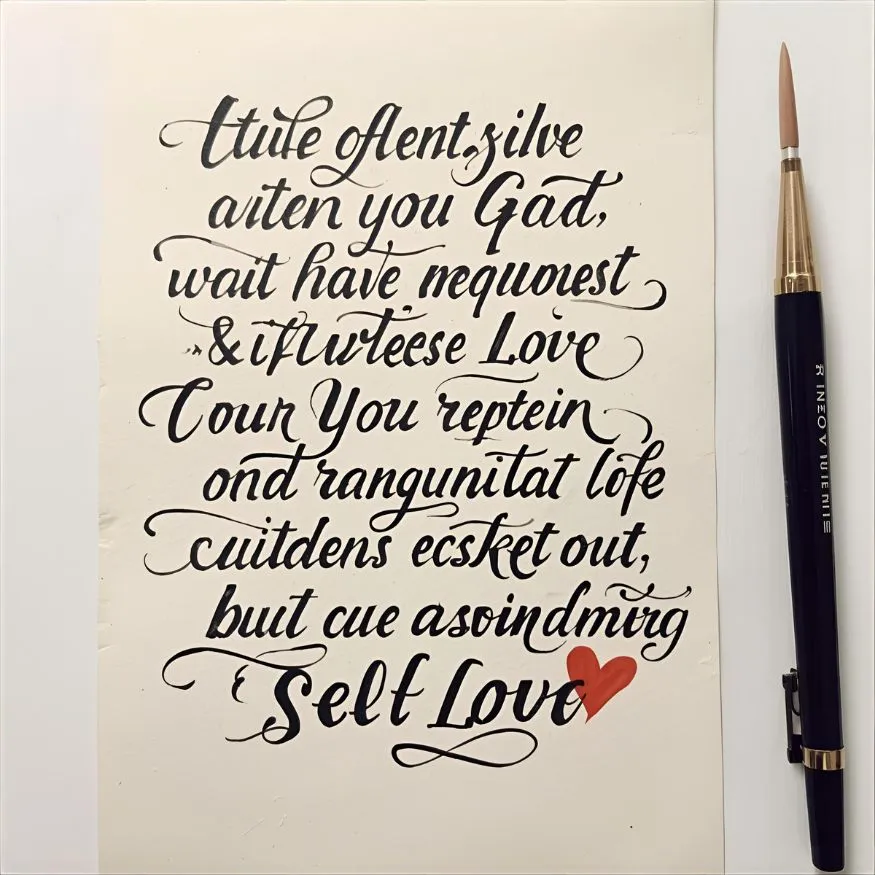 ttule oflent.zilve
aiten you Gad,
wait have mequouest
& ifturteese Love
Cour You reptein
ond rangunitat lofe
cuitdens ecsket out,
buut cue asoindmirg
Self Love